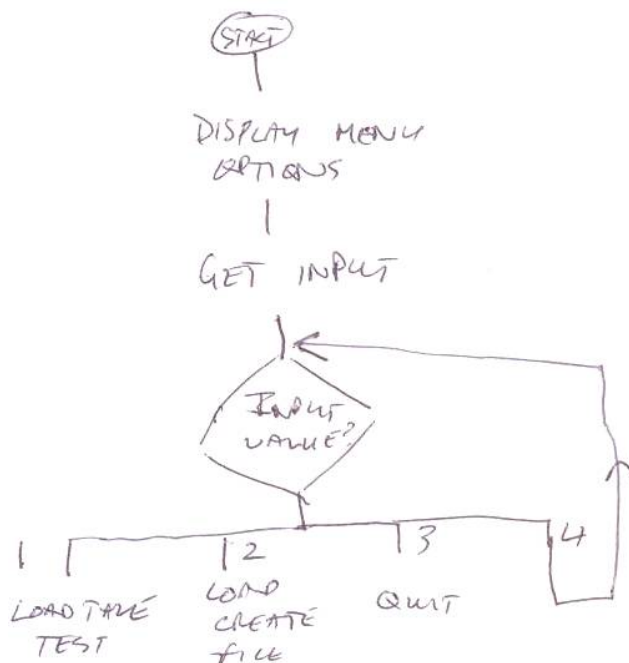 START
DISPLAY MENU
OPTIONS
GET INPUT
INPUT
VALUE?
1
2
3
4
LOAD TAKE
TEST
LOAD
CREATE
FILE
QUIT